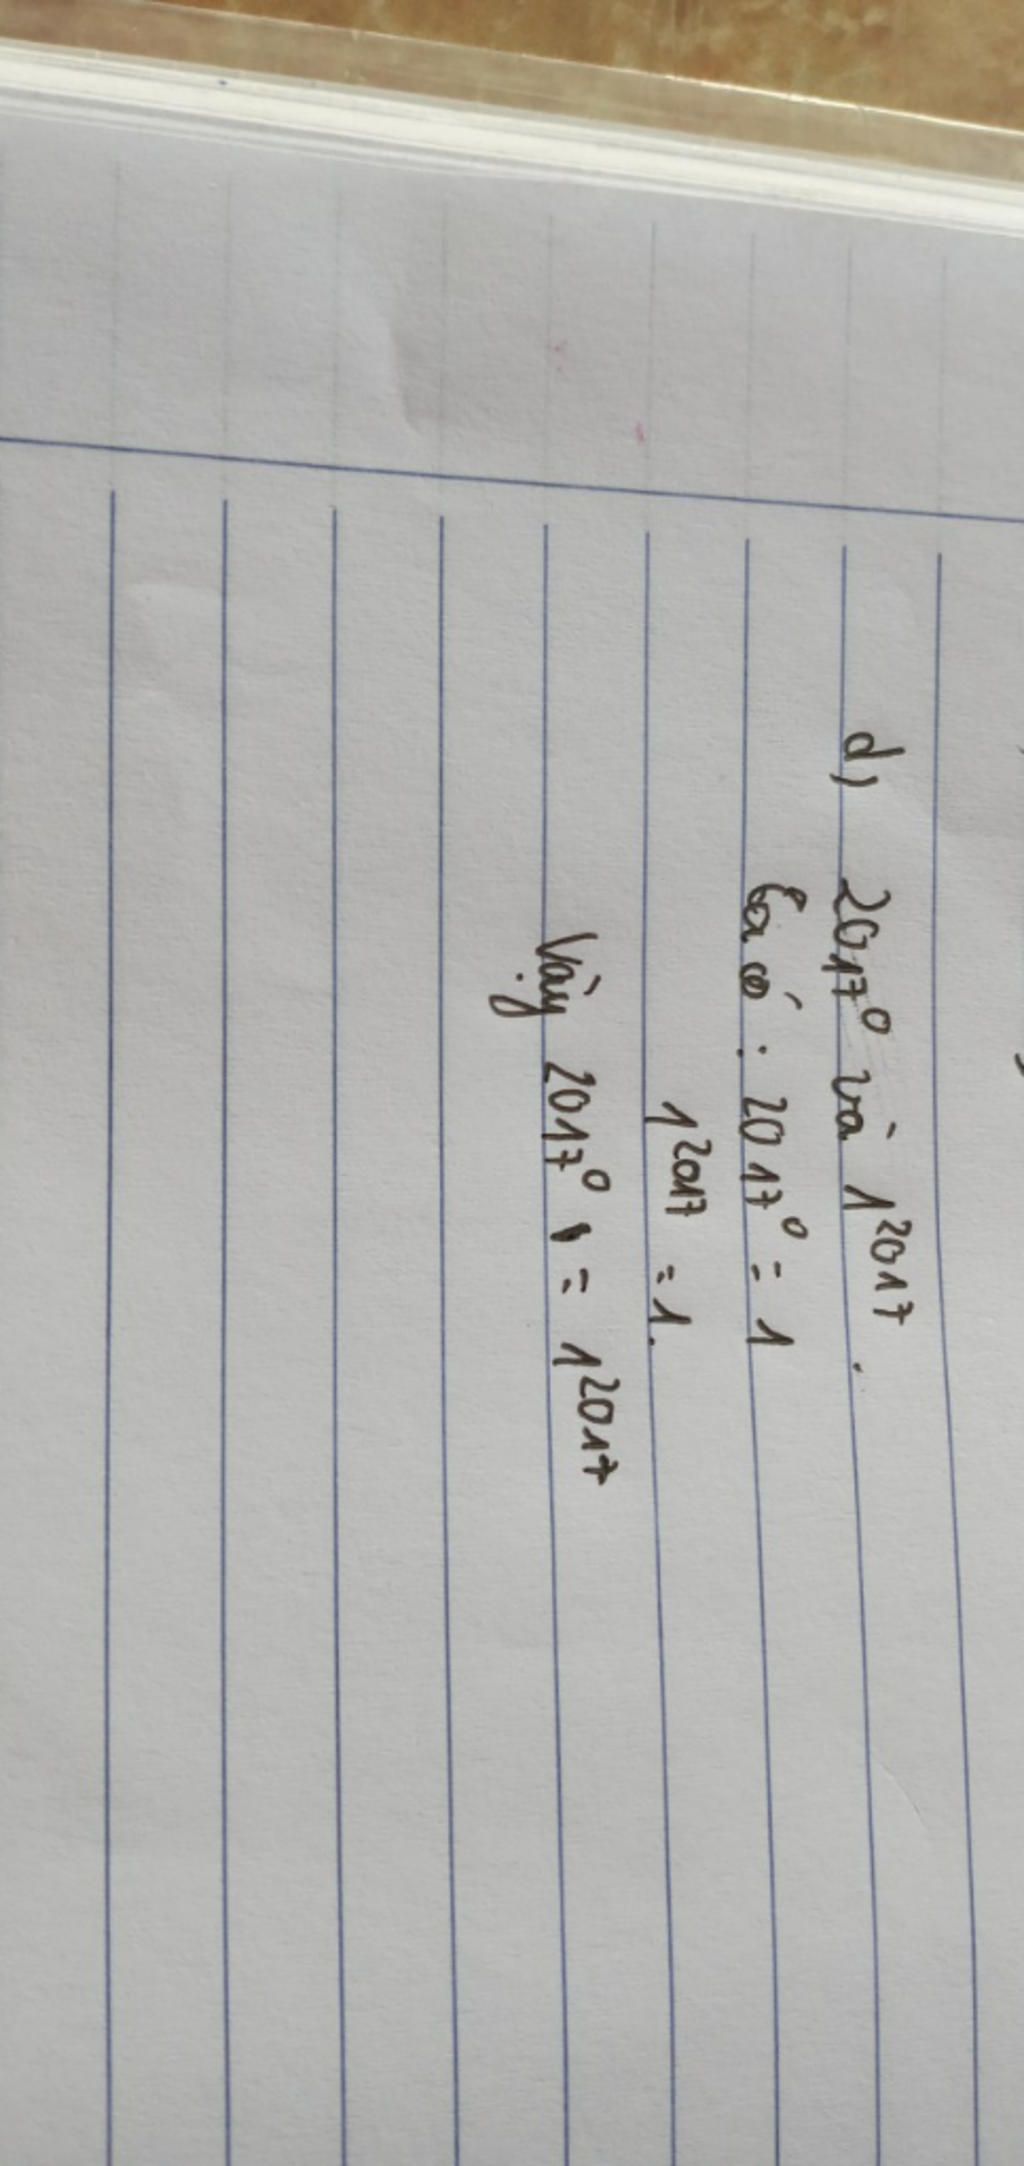 d) 2017⁰ và 1²⁰¹⁷.
Ta có : 2017⁰ = 1
1²⁰¹⁷ = 1.
Vậy 2017⁰ = 1²⁰¹⁷